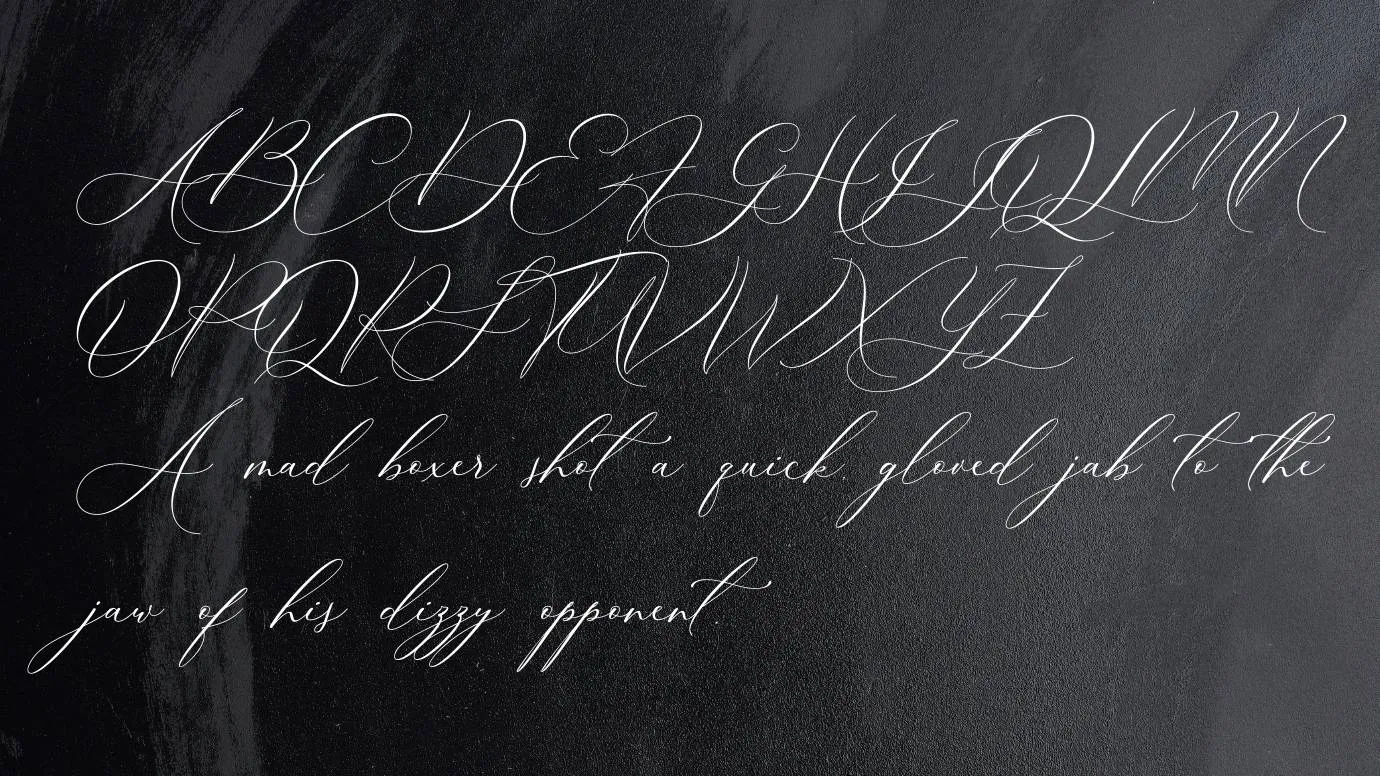 ABCDEFGHIJQLMN
OPQRSTUVWXYZ
A mad boxer shot a quick, gloved jab to the
jaw of his dizzy opponent.